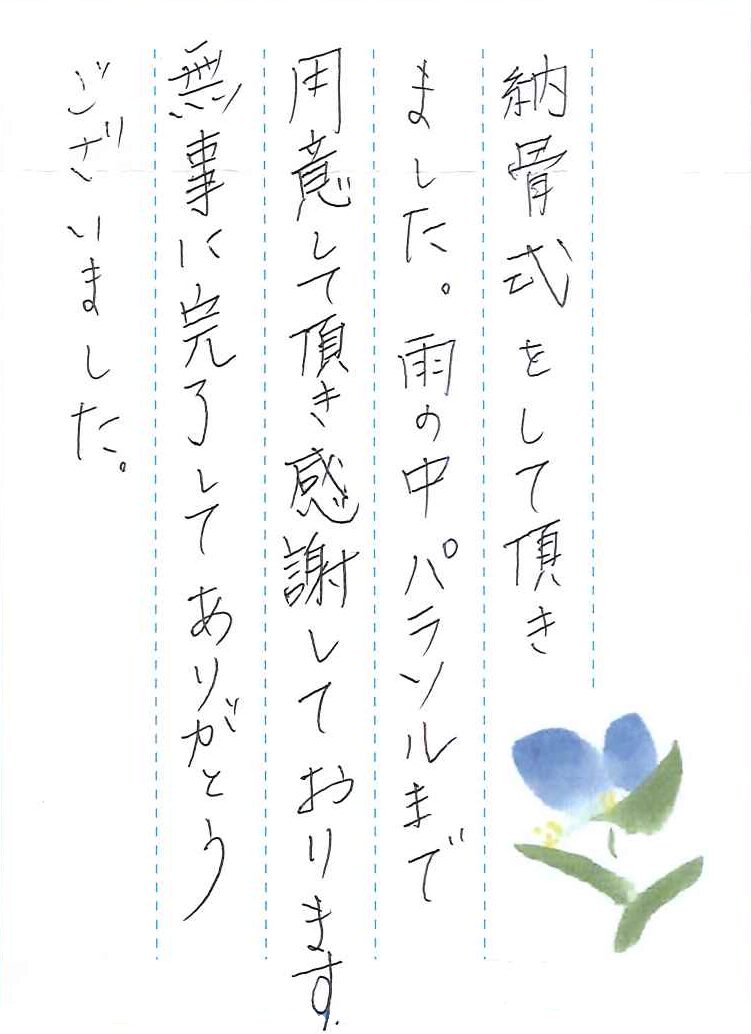 納骨式をして頂き
ました。雨の中パラソルまで
用意して頂き感謝しております.
無事に完了してありがとう
ございました。